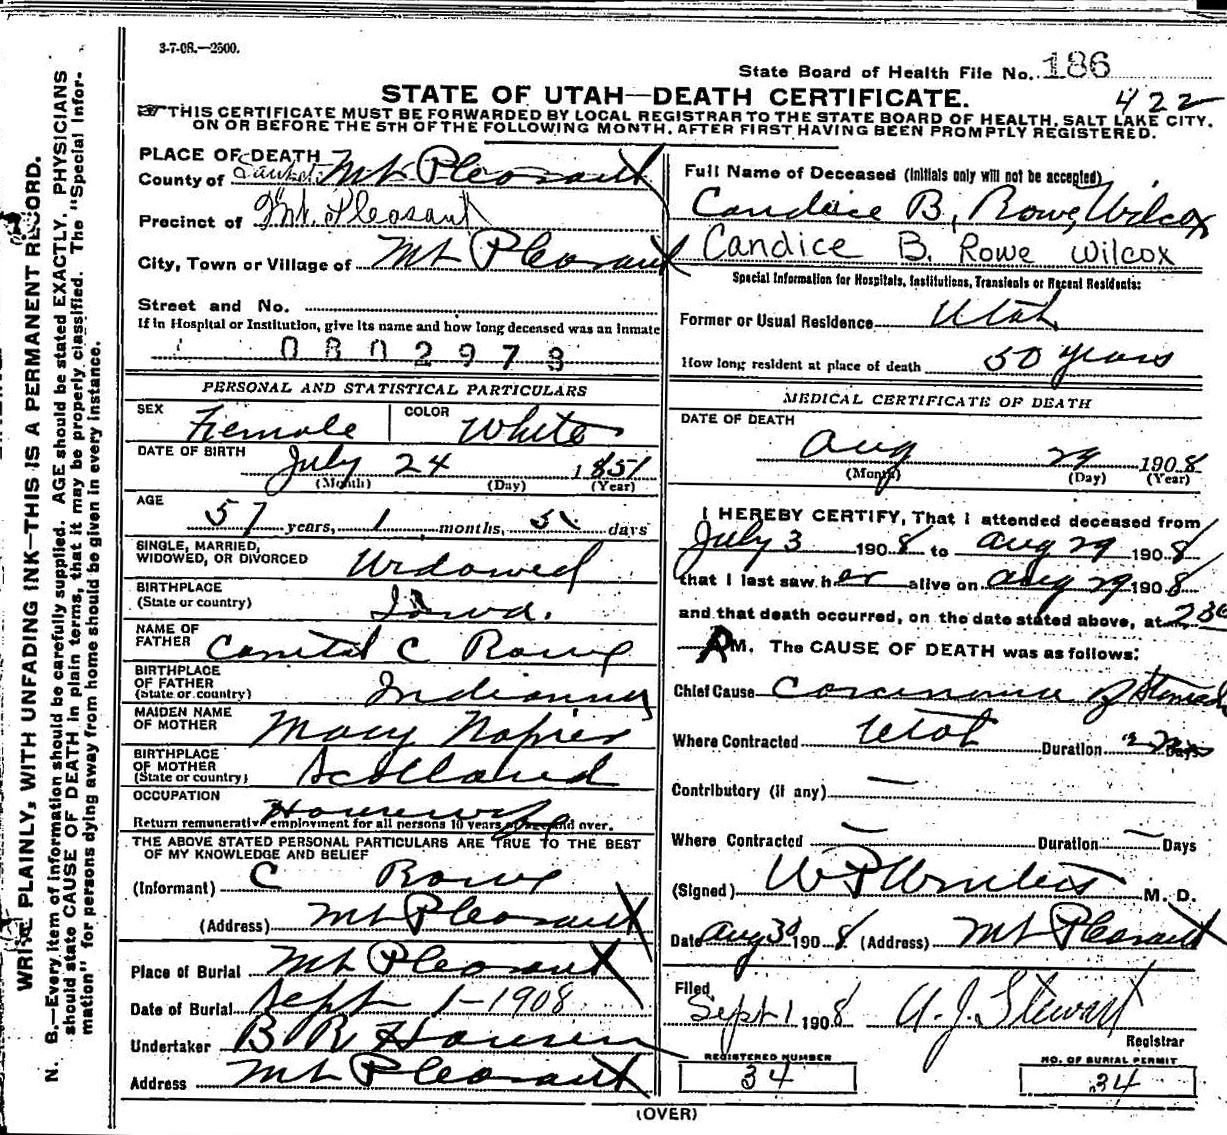 3-7-08.—2500.
State Board of Health File No. 186
STATE OF UTAH—DEATH CERTIFICATE.
422
THIS CERTIFICATE MUST BE FORWARDED BY LOCAL REGISTRAR TO THE STATE BOARD OF HEALTH, SALT LAKE CITY,
ON OR BEFORE THE 5TH OF THE FOLLOWING MONTH, AFTER FIRST HAVING BEEN PROMPTLY REGISTERED.
WRITE PLAINLY, WITH UNFADING INK—THIS IS A PERMANENT RECORD.
N. B.—Every item of information should be carefully supplied. AGE should be stated EXACTLY. PHYSICIANS
should state CAUSE OF DEATH in plain terms, that it may be properly classified. The "Special Infor-
mation" for persons dying away from home should be given in every instance.
PLACE OF DEATH
County of Mt Pleasant
Precinct of Mt. Pleasant
City, Town or Village of Mt Pleasant
Street and No.
If in Hospital or Institution, give its name and how long deceased was an inmate
0802973
PERSONAL AND STATISTICAL PARTICULARS
SEX Female COLOR White
DATE OF BIRTH July 24 1851
(Month) (Day) (Year)
AGE
57 years, 1 months, 5 days
SINGLE, MARRIED,
WIDOWED, OR DIVORCED Widowed
BIRTHPLACE
(State or country) Iowa.
NAME OF
FATHER C Rowe
BIRTHPLACE
OF FATHER
(State or country) Indianna
MAIDEN NAME
OF MOTHER Mary Napier
BIRTHPLACE
OF MOTHER
(State or country) Scotland
OCCUPATION Housewife
Return remunerative employment for all persons 10 years of age and over.
THE ABOVE STATED PERSONAL PARTICULARS ARE TRUE TO THE BEST
OF MY KNOWLEDGE AND BELIEF
(Informant) C Rowe
(Address) Mt Pleasant
Place of Burial Mt Pleasant
Date of Burial Sept 1-1908
Undertaker B R Hansen
Address Mt Pleasant
Full Name of Deceased (Initials only will not be accepted)
Candice B, Rowe, Wilcox
Candice B. Rowe Wilcox
Special Information for Hospitals, Institutions, Transients or Recent Residents:
Former or Usual Residence Utah
How long resident at place of death 50 years
MEDICAL CERTIFICATE OF DEATH
DATE OF DEATH
Aug 29 1908
(Month) (Day) (Year)
I HEREBY CERTIFY, That I attended deceased from
July 3 1908 to Aug 29 1908
that I last saw her alive on Aug 29 1908
and that death occurred, on the date stated above, at 230
AM. The CAUSE OF DEATH was as follows:
Chief Cause Carcinoma of Stomach
Where Contracted Utah Duration Days
Contributory (if any) —
Where Contracted — Duration — Days
(Signed) M. D.
Date Aug 30 1908 (Address) Mt Pleasant
Filed
Sept 1 1908 A. J. Stewart
Registrar
REGISTERED NUMBER
34
NO. OF BURIAL PERMIT
34
(OVER)